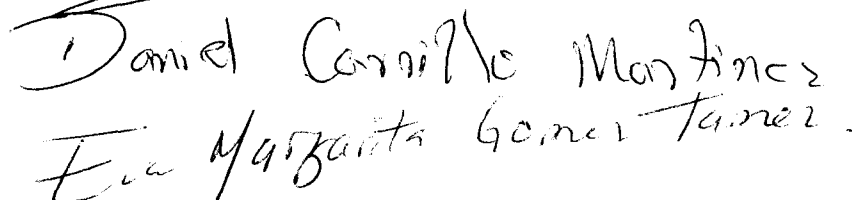 Daniel Carrillo Martinez
Eva Margarita Gomez Tamez.